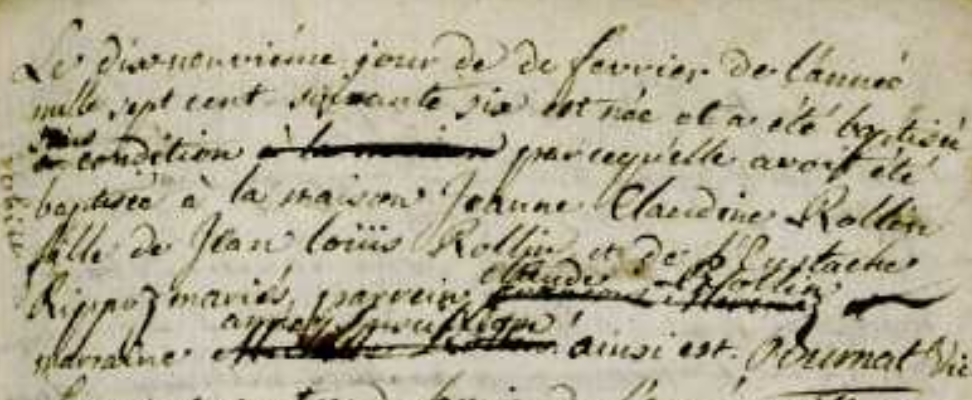 Le dixneuvième jour de de fevrier de l'année
mille sept cent soixante six est née et a été baptisée
sous
condition à la maison parcequ'elle avoit été
baptisée à la maison Jeanne Claudine Rollin
fille de Jean loüis Rollin et de Eustache
claude Rollin
Rippoz mariés, parrein
marraine ainsi est. Vic